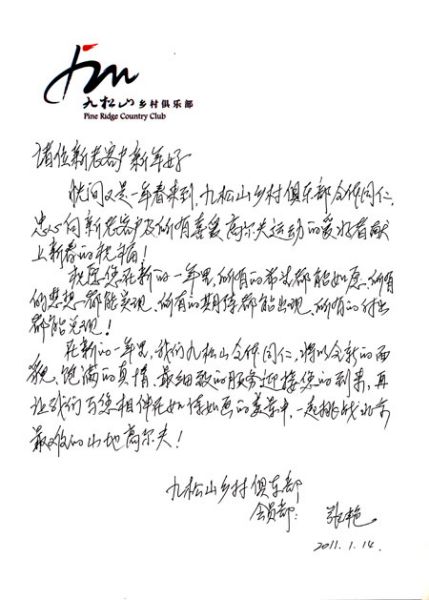 九松山乡村俱乐部
Pine Ridge Country Club
诸位新老客户新年好
恍间又是一年春来到,九松山乡村俱乐部全体同仁,
忠心向新老客户及所有喜爱高尔夫运动的爱好者献
上新春的祝福!
祝愿您在新的一年里,所有的希望都能如愿,所有
的梦想都能实现,所有的期待都能出现,所有的付出
都能兑现!
在新的一年里,我们九松山全体同仁,将以全新的面
貌,饱满的真情,最细致的服务迎接您的到来,再
让我们与您相伴在如诗如画的美景中,一起挑战北京
最难的山地高尔夫!
九松山乡村俱乐部
会员部: 张艳
2011.1.14.